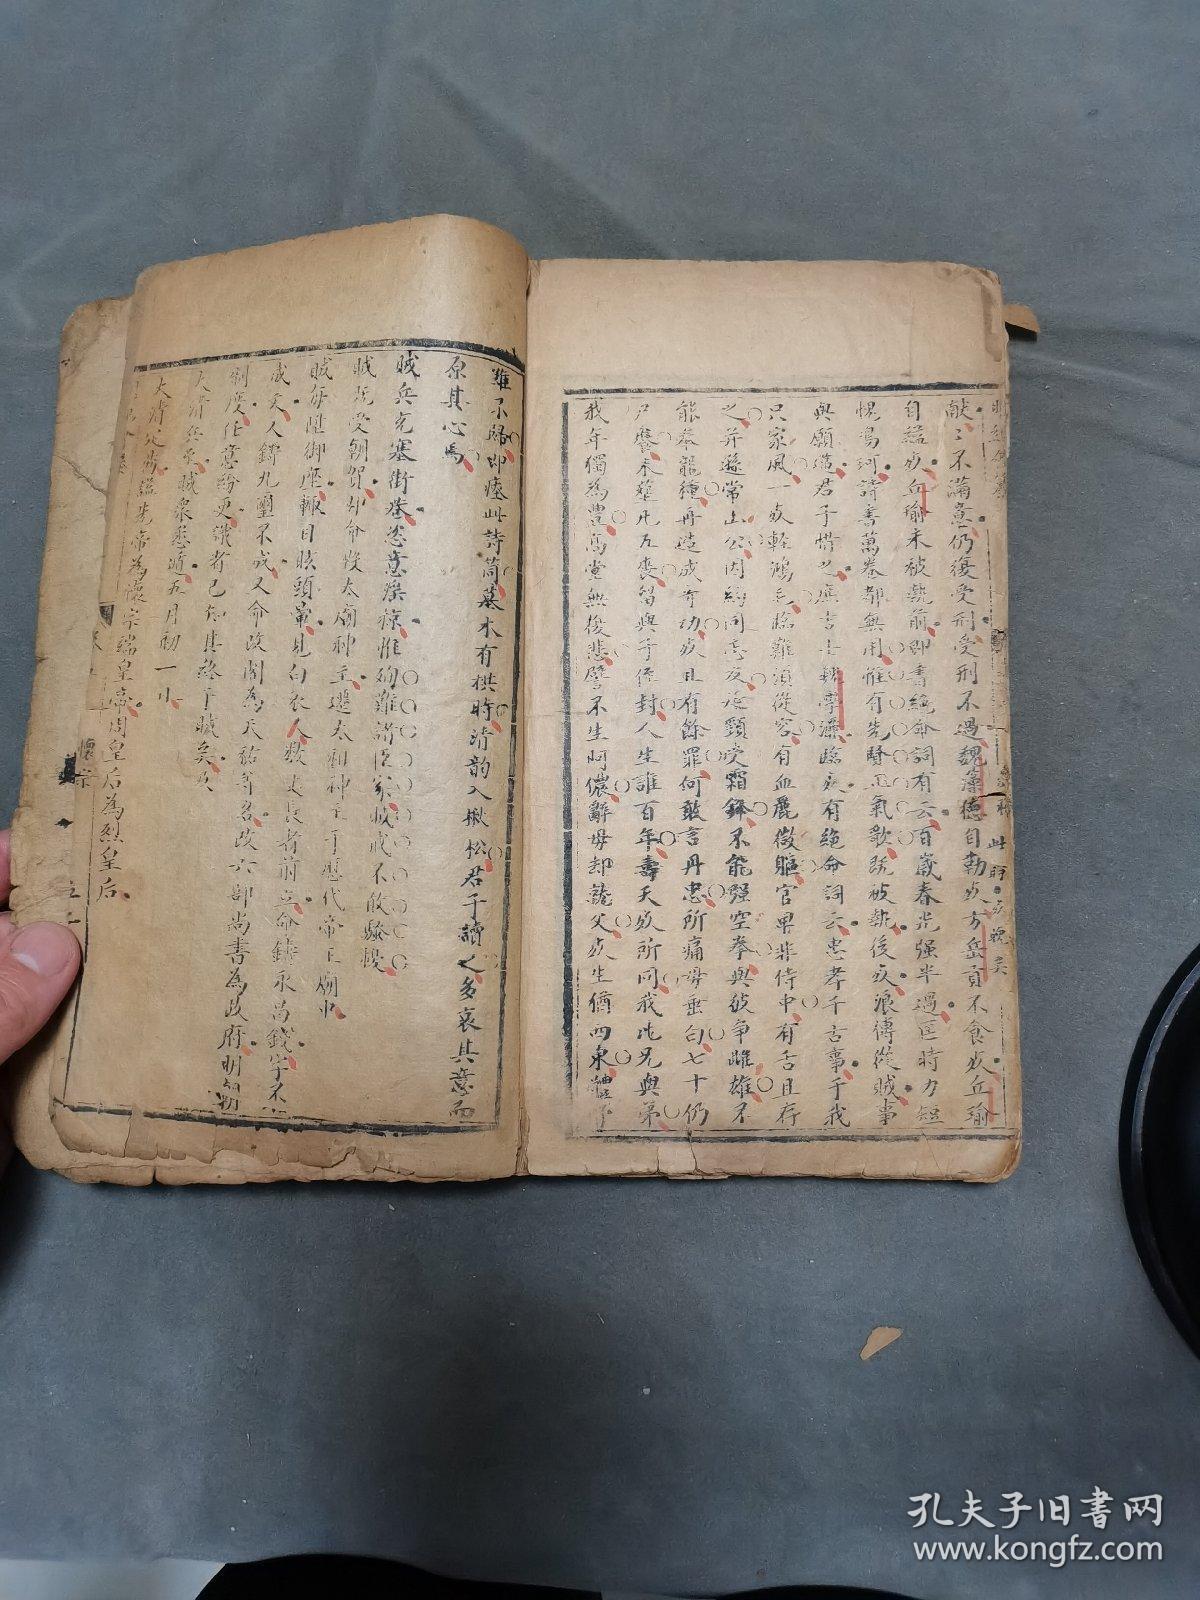 獻獻不滿意仍復受刑受刑不過魏藻德自勒死方岳貢不食死丘瑜
自縊死丘瑜未被執前即書絕命詞有云百歲春光强半過匡時力短
愧鳴珂詩書萬卷都無用惟有先賢正氣歌既被執後又浪傳從賊事
與願違君子惜之
死有絕命詞云忠孝千古事于我
只家風一死輕鴻毛臨難須從容有血麗微軀官卑非侍中有舌且存
之并遜常山公因約同志友延頸咬霜鋒不能强空拳與彼爭雌雄不
能奉龍種再造成奇功死且有餘罪何敢言丹忠所痛母垂白七十仍
尸饔未葬凡五喪留與予侄封人生誰百年壽夭死所同我沈兄與弟
我年獨為豐高堂無後悲譬不生阿儂辭母却就父死生猶四泉體下
雖不歸即瘞此詩筒墓木有拱時清韵入楸松君子讀之多哀其意而
原其心焉
賊兵充塞街巷恣意淫掠惟殉難諸臣家賊戒不敢騷擾
賊既受朝賀命毀太廟神主遷太祖神主于歷代帝王廟中
賊每陞御座輒目眩頭暈見白衣人數丈長者前立命鑄永昌錢字不
成文人鑄九璽不成又命改閣為天祐等名改六部尚書為政府明朝
制度任意紛更識者已知其終于賊矣及
大清兵至賊衆悉遁五月初一小
大清定鼎謚先帝為懷宗端皇帝周皇后為烈皇后
懷宗
孔夫子旧书网
www.kongfz.com